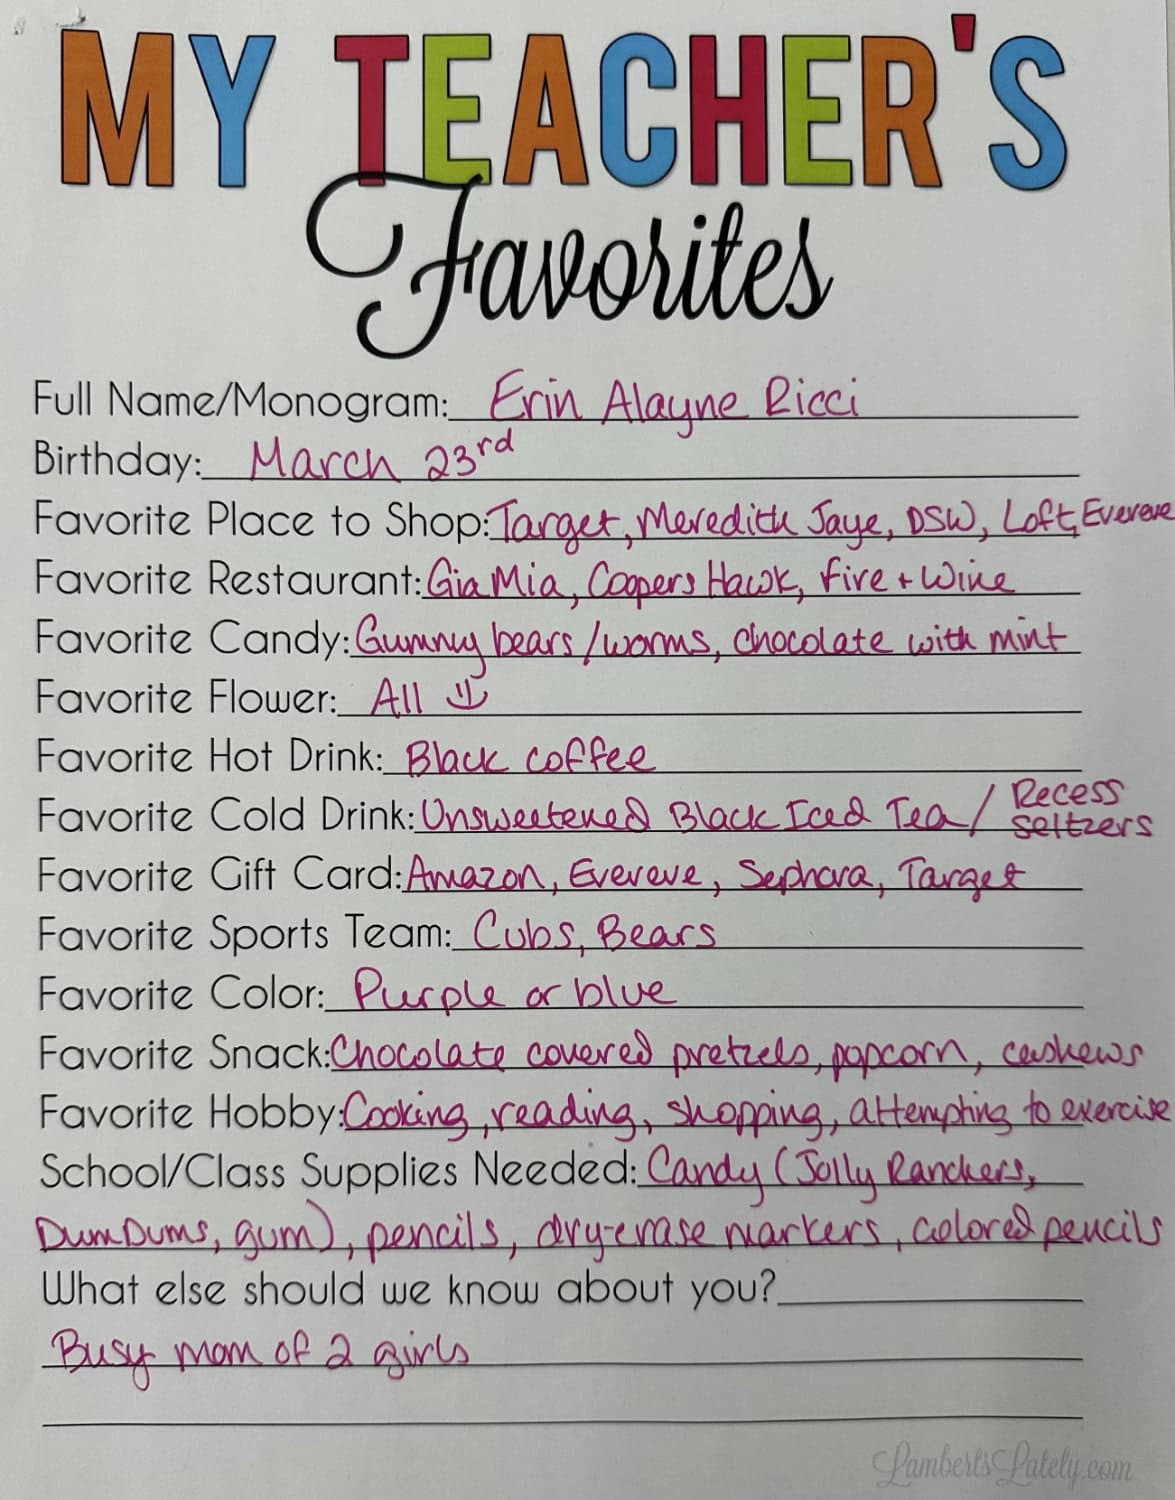 MY TEACHER'S
Favorites
Full Name/Monogram: Erin Alayne Ricci
Birthday: March 23rd
Favorite Place to Shop: Target, Meredith Jaye, DSW, Loft, Evereve
Favorite Restaurant: Gia Mia, Coopers Hawk, Fire + Wine
Favorite Candy: Gummy bears/worms, chocolate with mint
Favorite Flower: All
Favorite Hot Drink: Black coffee
Favorite Cold Drink: Unsweetened Black Iced Tea / Recess seltzers
Favorite Gift Card: Amazon, Evereve, Sephora, Target
Favorite Sports Team: Cubs, Bears
Favorite Color: Purple or blue
Favorite Snack: Chocolate covered pretzels, popcorn, cashews
Favorite Hobby: Cooking, reading, shopping, attempting to exercise
School/Class Supplies Needed: Candy (Jolly Ranchers,
DumDums, gum), pencils, dry-erase markers, colored pencils
What else should we know about you?
Busy mom of 2 girls
LambertsLately.com